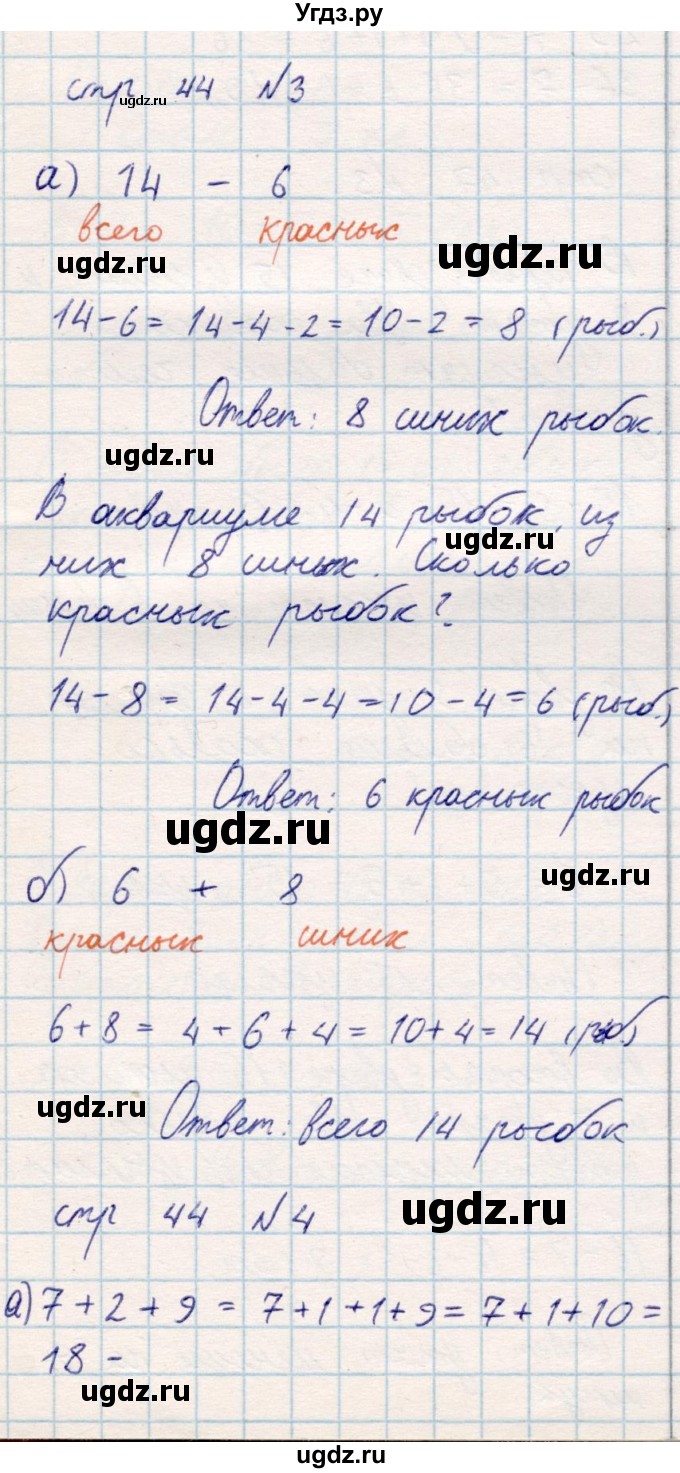 Угдз.ру
стр 44 №3
ugdz.ru
а) 14 - 6
всего красных
ugdz.ru
ugdz.ru
14-6= 14-4-2=10-2=8 (рыб.)
Ответ: 8 синих рыбок.
ugdz.ru
В аквариуме 14 рыбок, из
ugdz.ru
них 8 синих. Сколько
красных рыбок?
14-8= 14-4-4=10-4=6 (рыб.)
Ответ: 6 красных рыбок
ugdz.ru
ugdz.ru
б) 6 + 8
красных синих
6+8= 4+6+4= 10+4=14 (рыб.)
ugdz.ru
Ответ: всего 14 рыбок
стр 44 №4
ugdz.ru
а) 7+2+9= 7+1+1+9= 7+1+10=
18 -
ugdz.ru
ugdz.ru